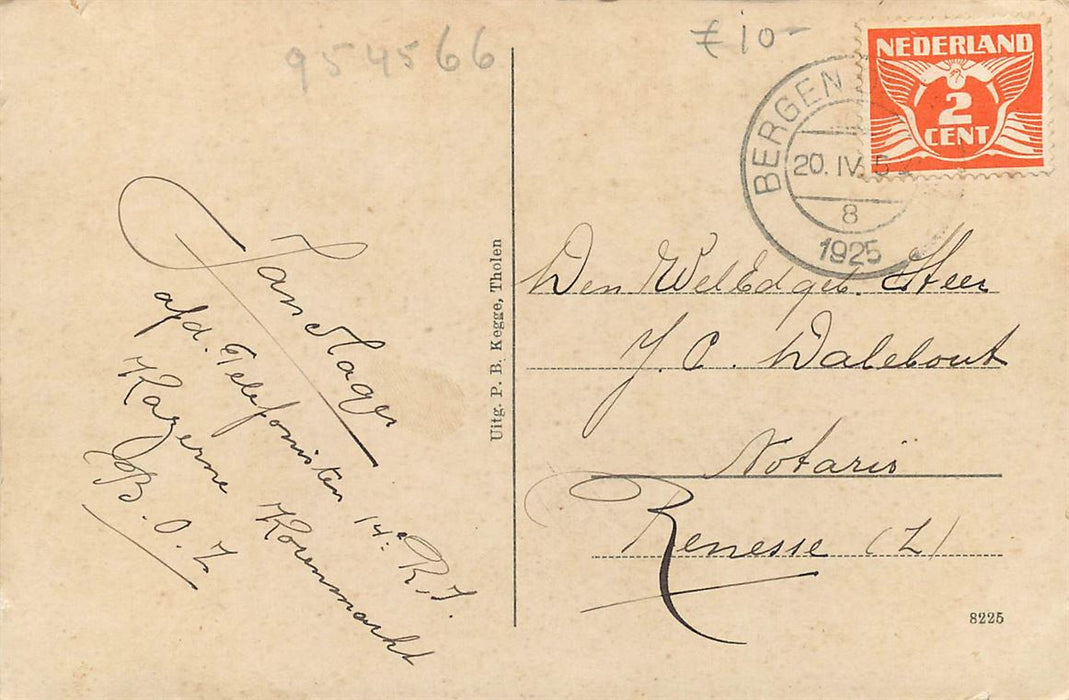 954566
€ 10-
NEDERLAND
2
CENT
BERGEN
20. IV. 5
8
1925
Jan Hage
afd. Telefonisten 14e R.I.
Kazerne Korenmarkt
B.O.Z
Uitg. P. B. Kegge, Tholen
Den WelEdgeb. Heer
J. C. Dalebout
Notaris
Renesse (Z)
8225